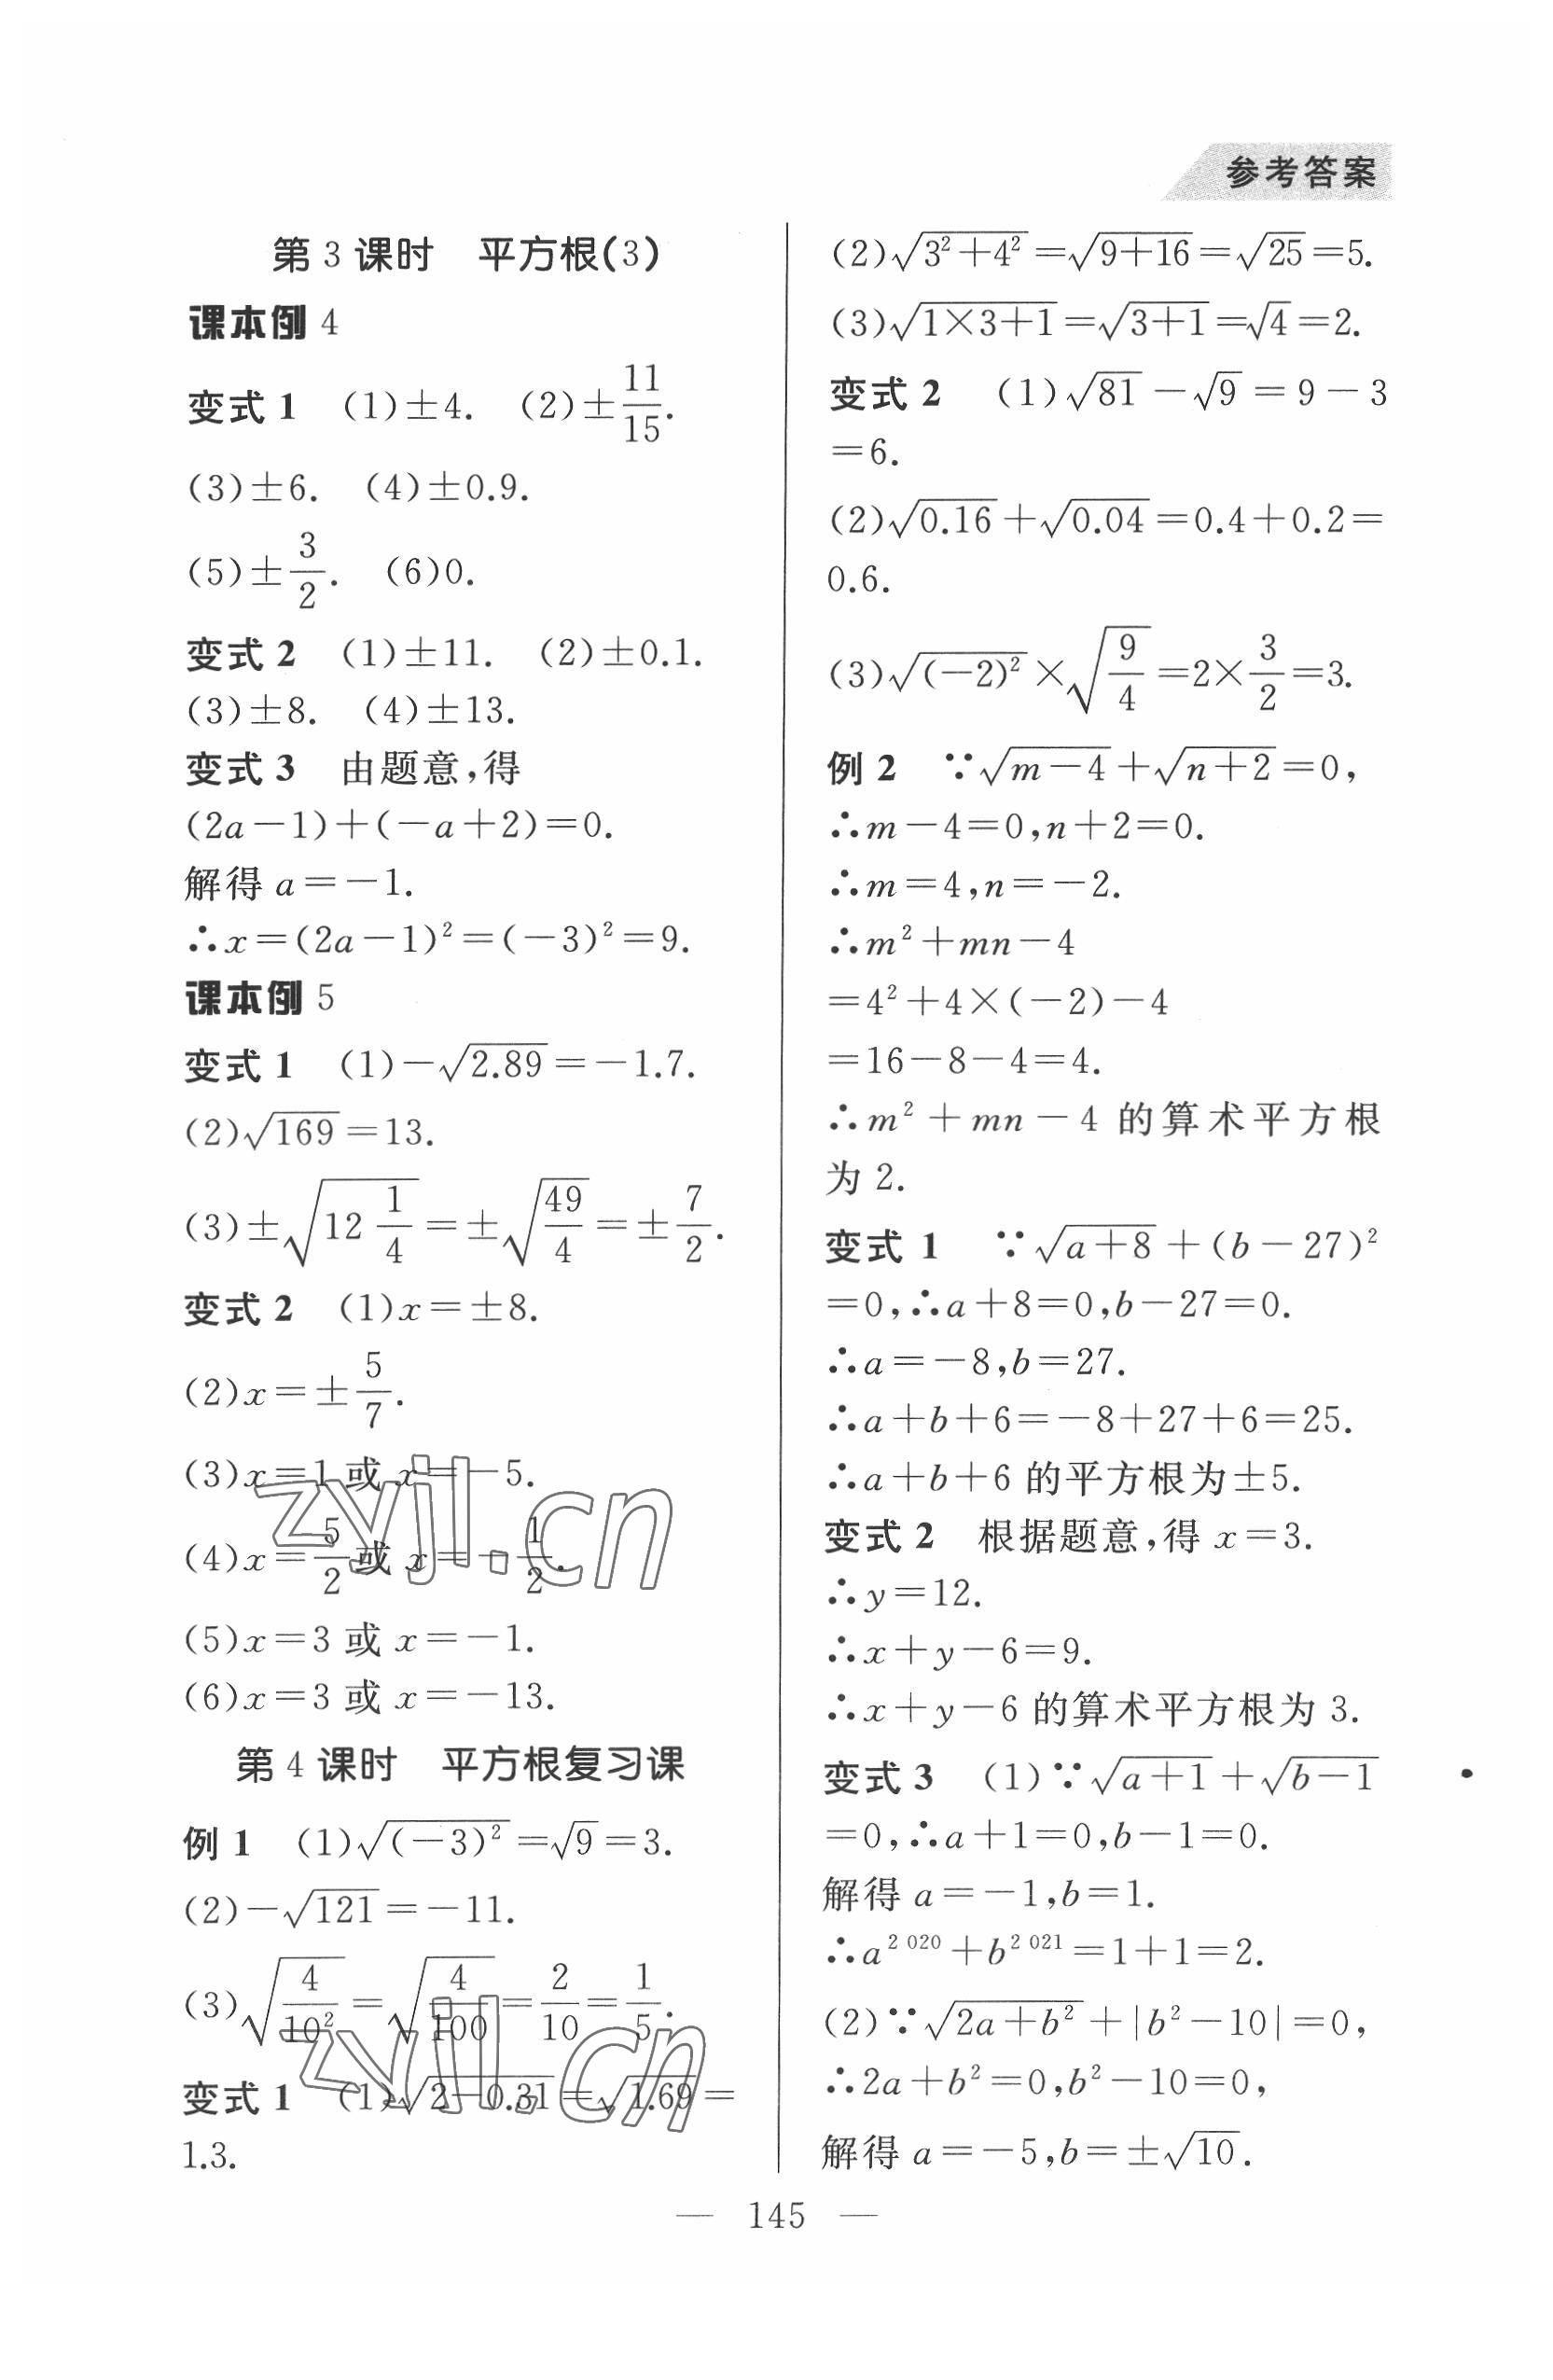 参考答案
第 3 课时　平方根(3)
课本例 4
变式 1　(1)±4.　(2)±11/15.
(3)±6.　(4)±0.9.
(5)±3/2.　(6)0.
变式 2　(1)±11.　(2)±0.1.
(3)±8.　(4)±13.
变式 3　由题意,得
(2a－1)＋(－a＋2)＝0.
解得 a＝－1.
∴x＝(2a－1)²＝(－3)²＝9.
课本例 5
变式 1　(1)－√2.89＝－1.7.
(2)√169＝13.
(3)±√(12 1/4)＝±√(49/4)＝±7/2.
变式 2　(1)x＝±8.
(2)x＝±5/7.
(3)x＝1 或 x＝－5.
(4)x＝5/2 或 x＝－1/2.
(5)x＝3 或 x＝－1.
(6)x＝3 或 x＝－13.
第 4 课时　平方根复习课
例 1　(1)√((－3)²)＝√9＝3.
(2)－√121＝－11.
(3)√(4/10²)＝√(4/100)＝2/10＝1/5.
变式 1　(1)√(2－0.31)＝√1.69＝
1.3.
(2)√(3²＋4²)＝√(9＋16)＝√25＝5.
(3)√(1×3＋1)＝√(3＋1)＝√4＝2.
变式 2　(1)√81－√9＝9－3
＝6.
(2)√0.16＋√0.04＝0.4＋0.2＝
0.6.
(3)√((－2)²)×√(9/4)＝2×3/2＝3.
例 2　∵√(m－4)＋√(n＋2)＝0,
∴m－4＝0,n＋2＝0.
∴m＝4,n＝－2.
∴m²＋mn－4
＝4²＋4×(－2)－4
＝16－8－4＝4.
∴m²＋mn－4 的算术平方根
为 2.
变式 1　∵√(a＋8)＋(b－27)²
＝0,∴a＋8＝0,b－27＝0.
∴a＝－8,b＝27.
∴a＋b＋6＝－8＋27＋6＝25.
∴a＋b＋6 的平方根为±5.
变式 2　根据题意,得 x＝3.
∴y＝12.
∴x＋y－6＝9.
∴x＋y－6 的算术平方根为 3.
变式 3　(1)∵√(a＋1)＋√(b－1)
＝0,∴a＋1＝0,b－1＝0.
解得 a＝－1,b＝1.
∴a^2 020＋b^2 021＝1＋1＝2.
(2)∵√(2a＋b²)＋|b²－10|＝0,
∴2a＋b²＝0,b²－10＝0,
解得 a＝－5,b＝±√10.
— 145 —
zyjl.cn
zyjl.cn